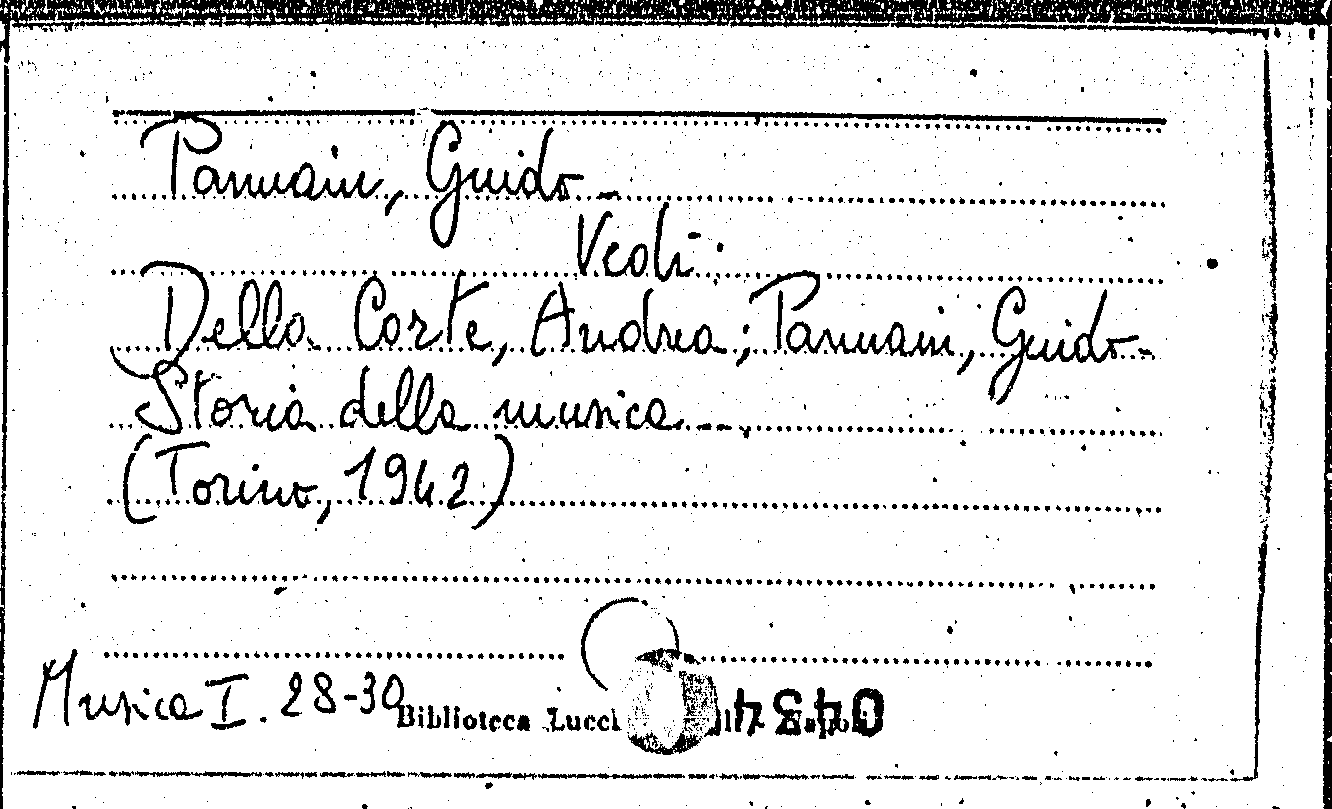 Pannain, Guido -
Vedi:
Della Corte, Andrea; Pannain, Guido -
Storia della musica ...
(Torino, 1942)
Musica I. 28-30
Biblioteca Lucchesi Palli - Napoli
0434